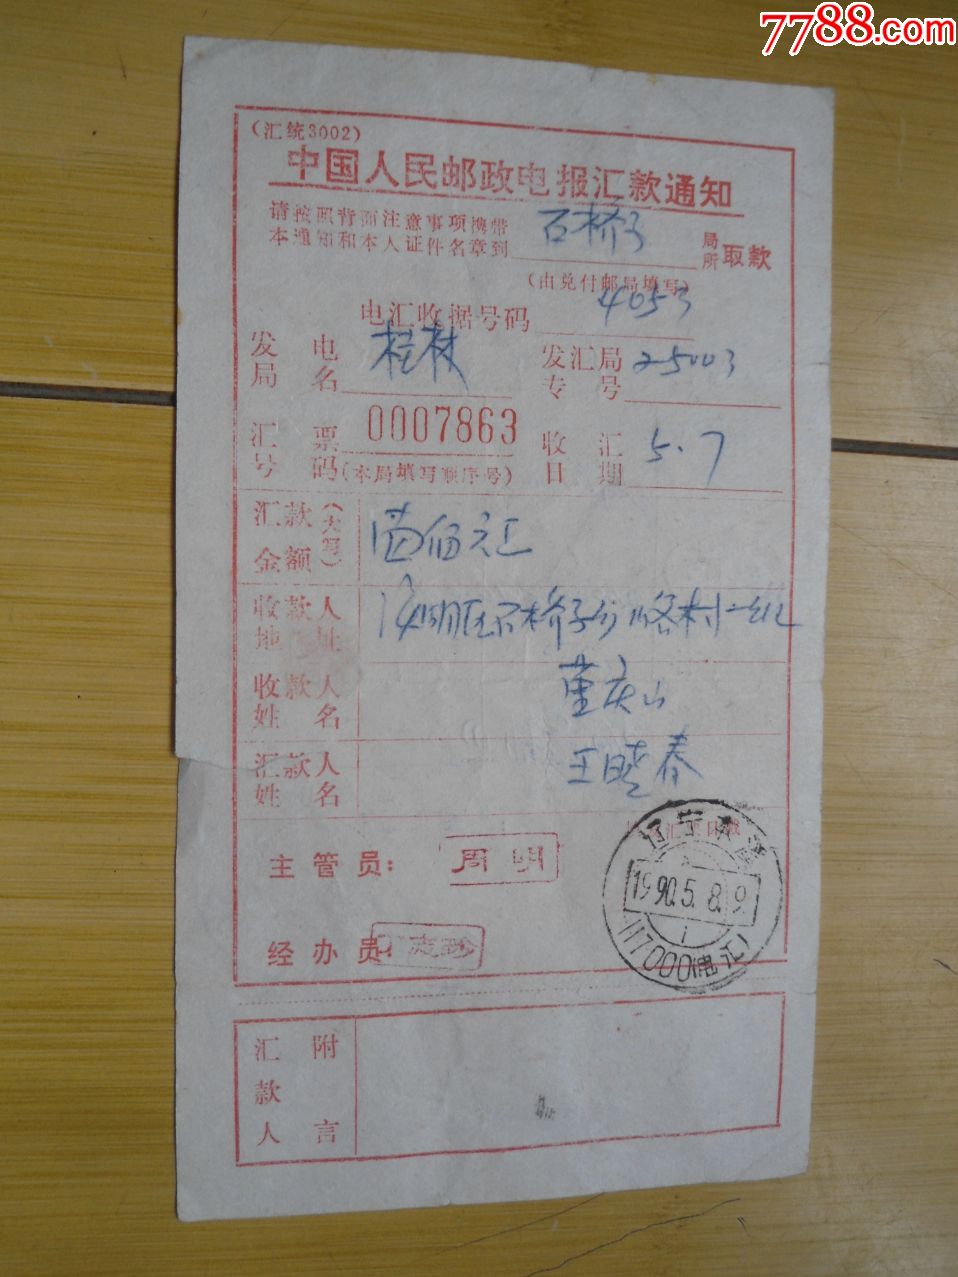 7788.com
(汇统3002)
中国人民邮政电报汇款通知
请按照背面注意事项携带
本通知和本人证件名章到
石桥子
局所取款
(由兑付邮局填写)
电汇收据号码 4053
发电局名 桂林
发汇局专号 25003
汇票号码 0007863
(本局填写顺序号)
收汇日期 5.7
汇款金额(大写) 佰元
收款人地址 明区石桥子 村一组
收款人姓名 董庆山
汇款人姓名 王晓春
主管员: 周明
经办员: 志
辽宁
1990.5.8.9
117000
汇款人附言